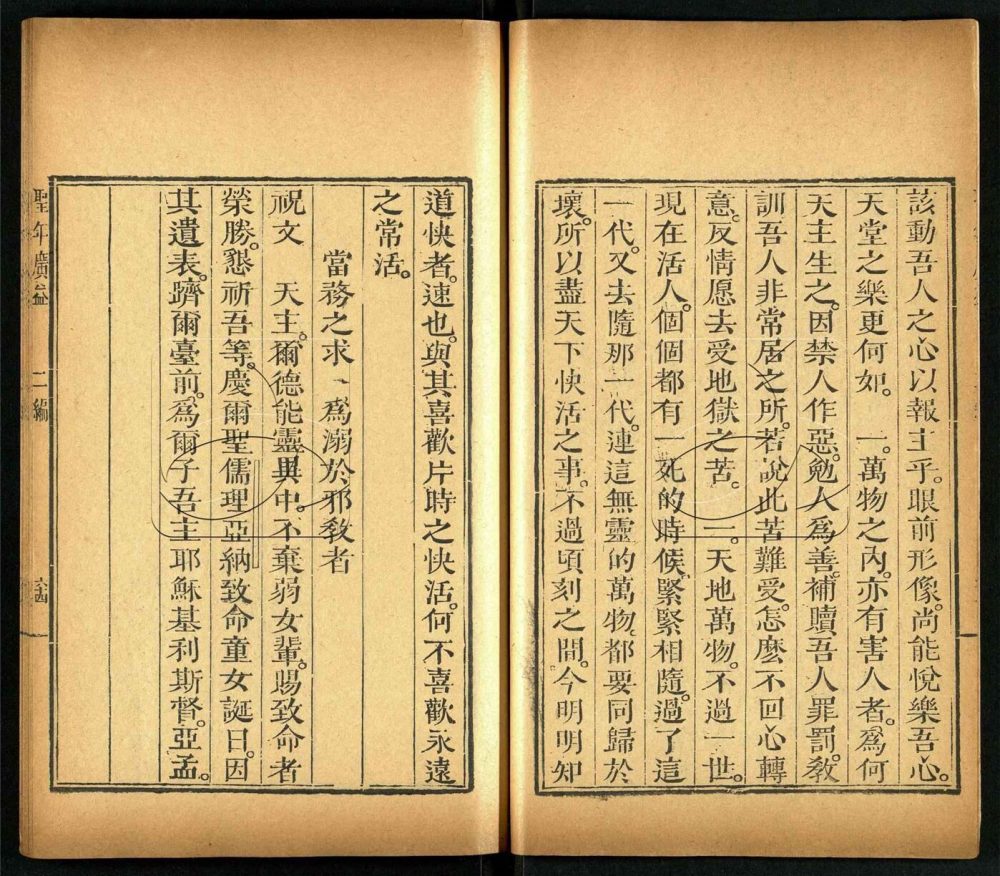 該動吾人之心以報主乎。眼前形像。尚能悅樂吾心。
天堂之樂更何如。 一。萬物之內。亦有害人者。為何
天主生之。因禁人作惡。勉人為善。補贖吾人罪罰。敎
訓吾人非常居之所。若說此苦難受。怎麽不回心轉
意。反情愿去受地獄之苦。 二。天地萬物。不過一世。
現在活人。個個都有一死的時候。緊緊相隨。過了這
一代。又去隨那一代。連這無靈的萬物。都要同歸於
壞。所以盡天下快活之事。不過頃刻之間。今明明知
道快者。速也。與其喜歡片時之快活。何不喜歡永遠
之常活。
當務之求、為溺於邪敎者
祝文 天主。爾德能靈異中。不棄弱女輩。賜致命者
榮勝。懇祈吾等。慶爾聖儒理亞納致命童女誕日。因
其遺表。躋爾臺前。為爾子吾主耶穌基利斯督。亞孟。
聖年廣益 二編 六十四